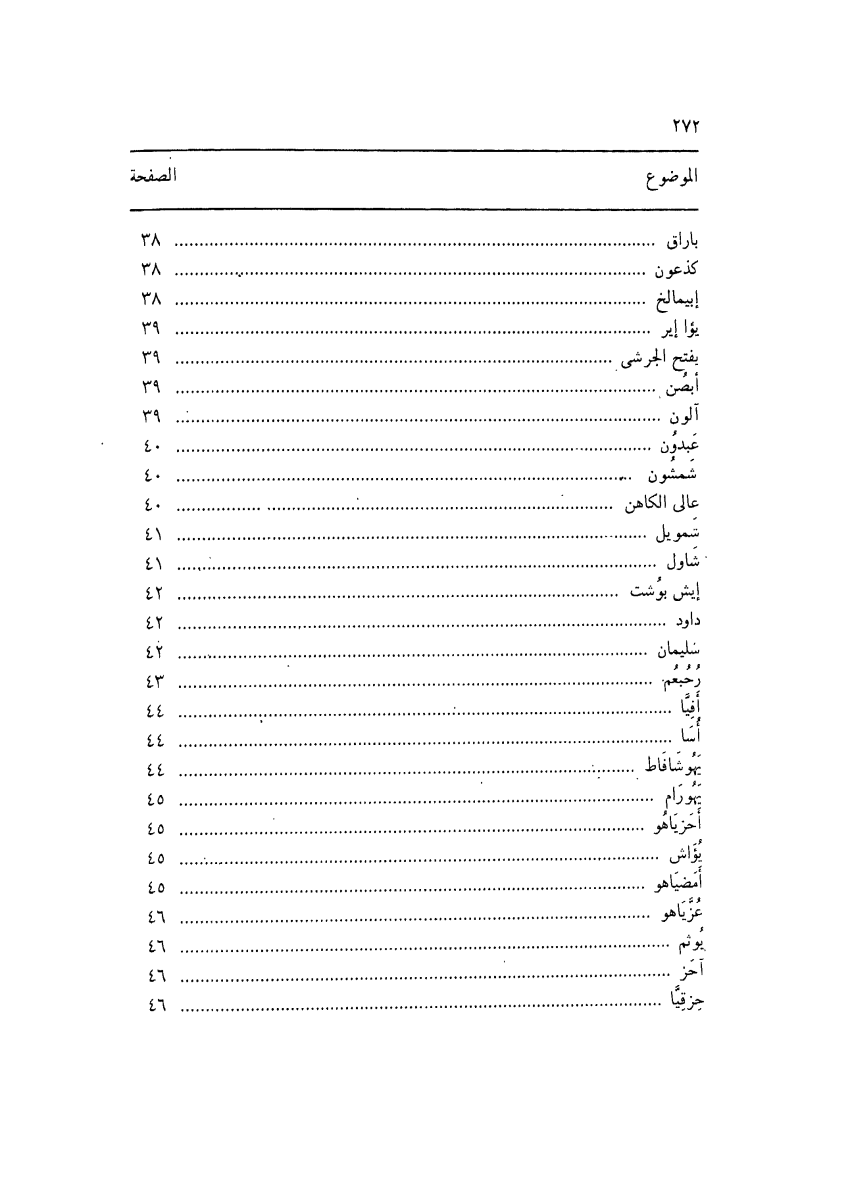 ٢٧٢
الموضوع الصفحة
باراق ........ ٣٨
كذعون ........ ٣٨
إبيمالخ ........ ٣٨
يؤا إير ........ ٣٩
يفتح الجرشى ........ ٣٩
أبصُن ........ ٣٩
آلون ........ ٣٩
عَبدوُن ........ ٤٠
شَمشُون ........ ٤٠
عالى الكاهن ........ ٤٠
شَمويل ........ ٤١
شَاول ........ ٤١
إيش بوُشت ........ ٤٢
داود ........ ٤٢
سليمان ........ ٤٢
رُحُبعُم ........ ٤٣
أَفِيَّا ........ ٤٤
أُسَا ........ ٤٤
يَهُوشَافَاط ........ ٤٤
يَهُورَام ........ ٤٥
أَحَزيَاهُو ........ ٤٥
يُؤَاش ........ ٤٥
أَمَضيَاهو ........ ٤٥
عُزَّيَاهو ........ ٤٦
يُوثم ........ ٤٦
آحَز ........ ٤٦
حِزقِيَّا ........ ٤٦